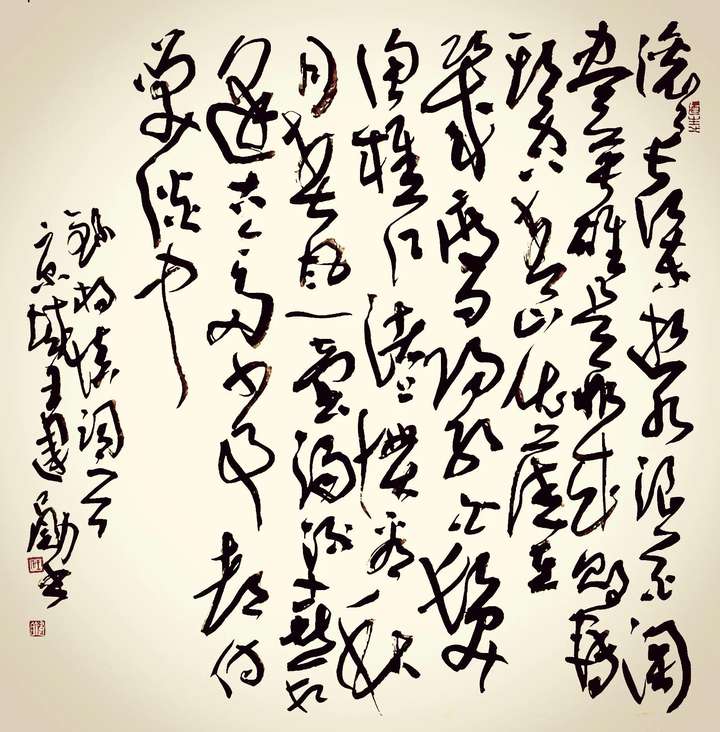 滚滚长江东逝水浪花淘
尽英雄是非成败转
头空青山依旧在
几度夕阳红白发
渔樵江渚上惯看秋
月春风一壶浊酒喜相
逢古今多少事都付
笑谈中
录杨慎词一首
京城王勋书